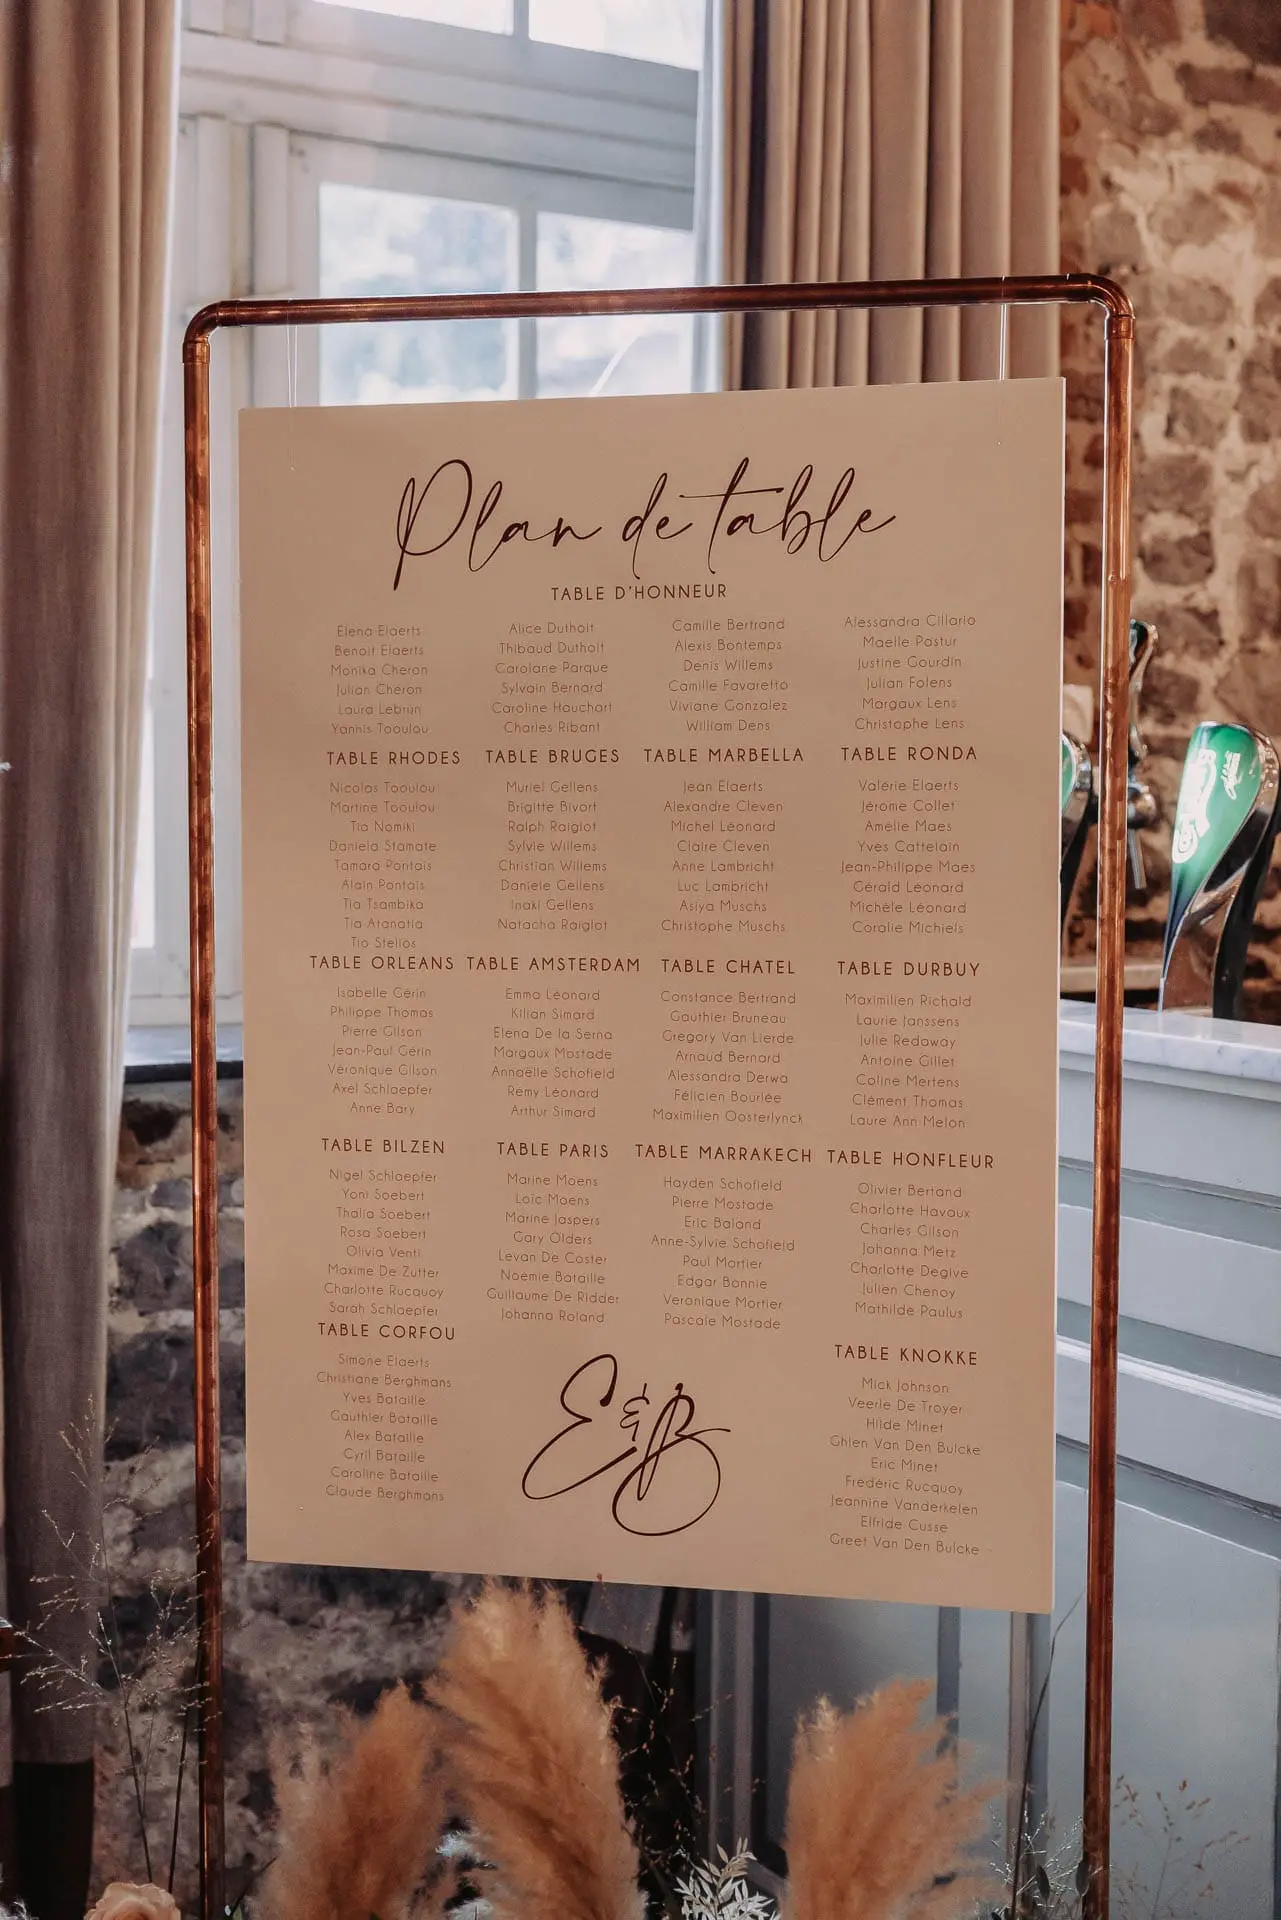 Plan de table
TABLE D'HONNEUR
Elena Elaerts
Benoit Elaerts
Monika Cheron
Julian Cheron
Laura Lebrun
Yannis Tooulou
Alice Duthoit
Thibaud Duthoit
Carolane Parque
Sylvain Bernard
Caroline Hauchart
Charles Ribant
Camille Bertrand
Alexis Bontemps
Denis Willems
Camille Favaretto
Viviane Gonzalez
William Dens
Alessandra Cillario
Maelle Pastur
Justine Gourdin
Julian Folens
Margaux Lens
Christophe Lens
TABLE RHODES
Nicolas Tooulou
Martine Tooulou
Tia Nomiki
Daniela Stamate
Tamara Pontais
Alain Pontais
Tia Tsambika
Tia Atanatia
Tio Stelios
TABLE BRUGES
Muriel Gellens
Brigitte Bivort
Ralph Raiglot
Sylvie Willems
Christian Willems
Daniele Gellens
Inaki Gellens
Natacha Raiglot
TABLE MARBELLA
Jean Elaerts
Alexandre Cleven
Michel Léonard
Claire Cleven
Anne Lambricht
Luc Lambricht
Asiya Muschs
Christophe Muschs
TABLE RONDA
Valérie Elaerts
Jérome Collet
Amélie Maes
Yves Cattelain
Jean-Philippe Maes
Gérald Léonard
Michèle Léonard
Coralie Michiels
TABLE ORLEANS
Isabelle Gérin
Philippe Thomas
Pierre Gilson
Jean-Paul Gérin
Véronique Gilson
Axel Schlaepfer
Anne Bary
TABLE AMSTERDAM
Emma Léonard
Kilian Simard
Elena De la Serna
Margaux Mostade
Annaëlle Schofield
Rémy Léonard
Arthur Simard
TABLE CHATEL
Constance Bertrand
Gauthier Bruneau
Gregory Van Lierde
Arnaud Bernard
Alessandra Derwa
Félicien Bourlée
Maximilien Oosterlynck
TABLE DURBUY
Maximilien Richald
Laurie Janssens
Julie Redaway
Antoine Gillet
Coline Mertens
Clément Thomas
Laure Ann Melon
TABLE BILZEN
Nigel Schlaepfer
Yoni Soebert
Thalia Soebert
Rosa Soebert
Olivia Venti
Maxime De Zutter
Charlotte Rucquoy
Sarah Schlaepfer
TABLE PARIS
Marine Moens
Loïc Moens
Marine Jaspers
Gary Olders
Levan De Coster
Noemie Bataille
Guillaume De Ridder
Johanna Roland
TABLE MARRAKECH
Hayden Schofield
Pierre Mostade
Eric Baland
Anne-Sylvie Schofield
Paul Mortier
Edgar Bonnie
Veronique Mortier
Pascale Mostade
TABLE HONFLEUR
Olivier Bertand
Charlotte Havaux
Charles Gilson
Johanna Metz
Charlotte Degive
Julien Chenoy
Mathilde Paulus
TABLE CORFOU
Simone Elaerts
Christiane Berghmans
Yves Bataille
Gauthier Bataille
Alex Bataille
Cyril Bataille
Caroline Bataille
Claude Berghmans
E&B
TABLE KNOKKE
Mick Johnson
Veerle De Troyer
Hilde Minet
Ghien Van Den Bulcke
Eric Minet
Frédéric Rucquoy
Jeannine Vanderkelen
Elfride Cusse
Greet Van Den Bulcke